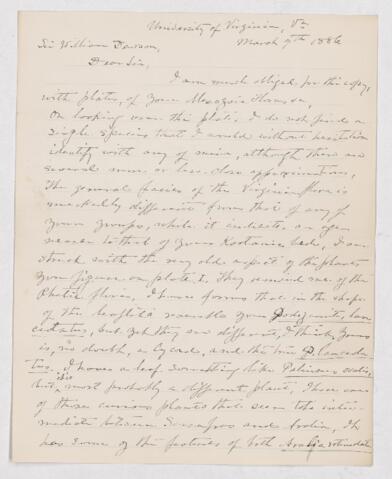 University of Virginia, Va
March 9th 1886
Sir William Dawson,
Dear Sir,
I am much obliged for the copy,
with plates, of your Mesozoic floras,
On looking over the plates I do not find a
single species that I could without hesitation
identify with any of mine, although there are
several more or less close approximations,
The general facies of the Virginia flora is
markedly different from that of any of
your groups, while it indicates an age
nearer to that of your Kootanie beds, I am
struck with the very old aspect of the plants
you figure on plate I, They remind me of the
Rhetic flora, I have forms that in the shape
of the leaflets resemble your Podozamites lan-
ceolatus, but yet they are different, I think yours
is, no doubt, a Cycad, and the true P. lanceola-
tus. I have a leaf something like Paliurus
but most probably a different plant,
of those curious plants that seem to be inter-
mediate between Sassafras and Aralia, It
has some of the features of both Aralia